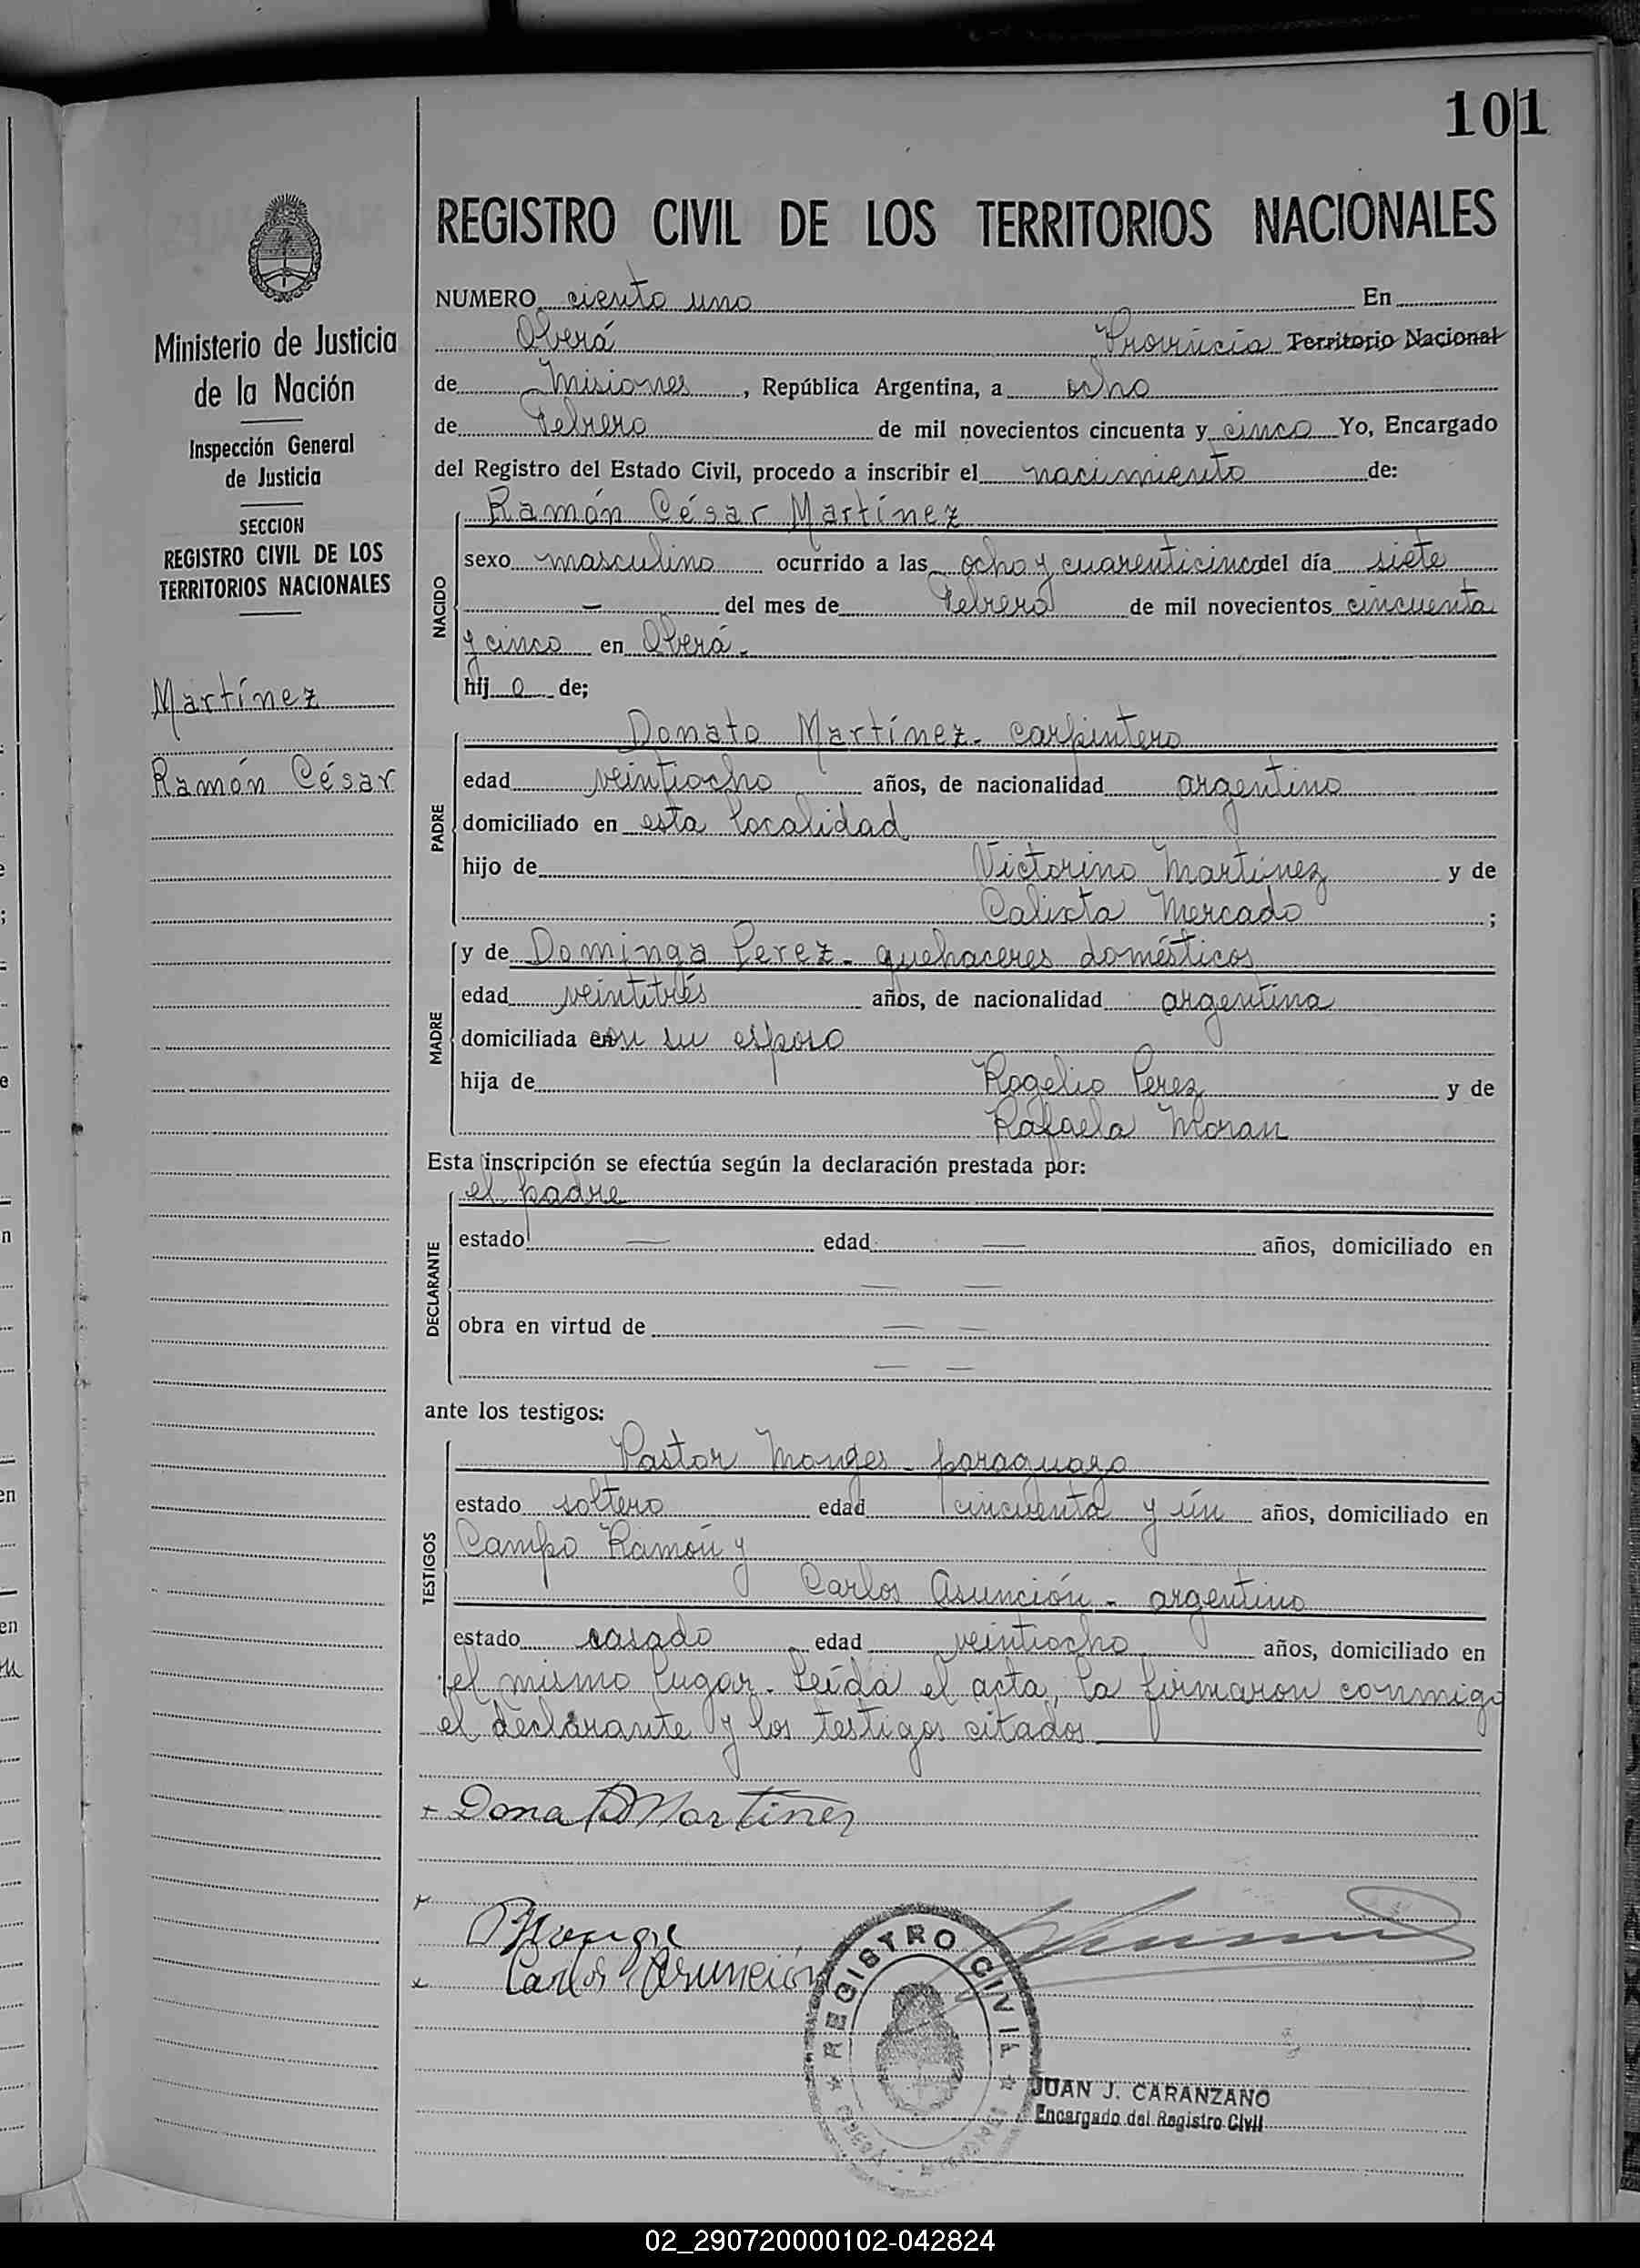 101
REGISTRO CIVIL DE LOS TERRITORIOS NACIONALES
Ministerio de Justicia
de la Nación
Inspección General
de Justicia
SECCION
REGISTRO CIVIL DE LOS
TERRITORIOS NACIONALES
Martínez
Ramón César
NUMERO ciento uno En
Oberá Provincia Territorio Nacional
de Misiones, República Argentina, a ocho
de Febrero de mil novecientos cincuenta y cinco Yo, Encargado
del Registro del Estado Civil, procedo a inscribir el nacimiento de:
NACIDO
Ramón César Martínez
sexo masculino ocurrido a las ocho y cuarenticinco del día siete
— del mes de Febrero de mil novecientos cincuenta
y cinco en Oberá.
hij o de;
PADRE
Donato Martínez - carpintero
edad veintiocho años, de nacionalidad argentino
domiciliado en esta localidad
hijo de Victorino Martínez y de
Calixta Mercado ;
MADRE
y de Dominga Perez - quehaceres domésticos
edad veintitrés años, de nacionalidad argentina
domiciliada con su esposo
hija de Rogelio Perez y de
Rafaela Moran
Esta inscripción se efectúa según la declaración prestada por:
DECLARANTE
el padre
estado — edad — años, domiciliado en
— —
obra en virtud de — —
— —
ante los testigos:
TESTIGOS
Pastor Monges - paraguayo
estado soltero edad cincuenta y ún años, domiciliado en
Campo Ramón y
Carlos Asunción - argentino
estado casado edad veintiocho años, domiciliado en
el mismo lugar. Leída el acta, la firmaron conmigo
el declarante y los testigos citados
+ Donato Martinez
P Monge
Carlos Asunción
REGISTRO CIVIL
JUAN J. CARANZANO
Encargado del Registro Civil
02_290720000102-042824